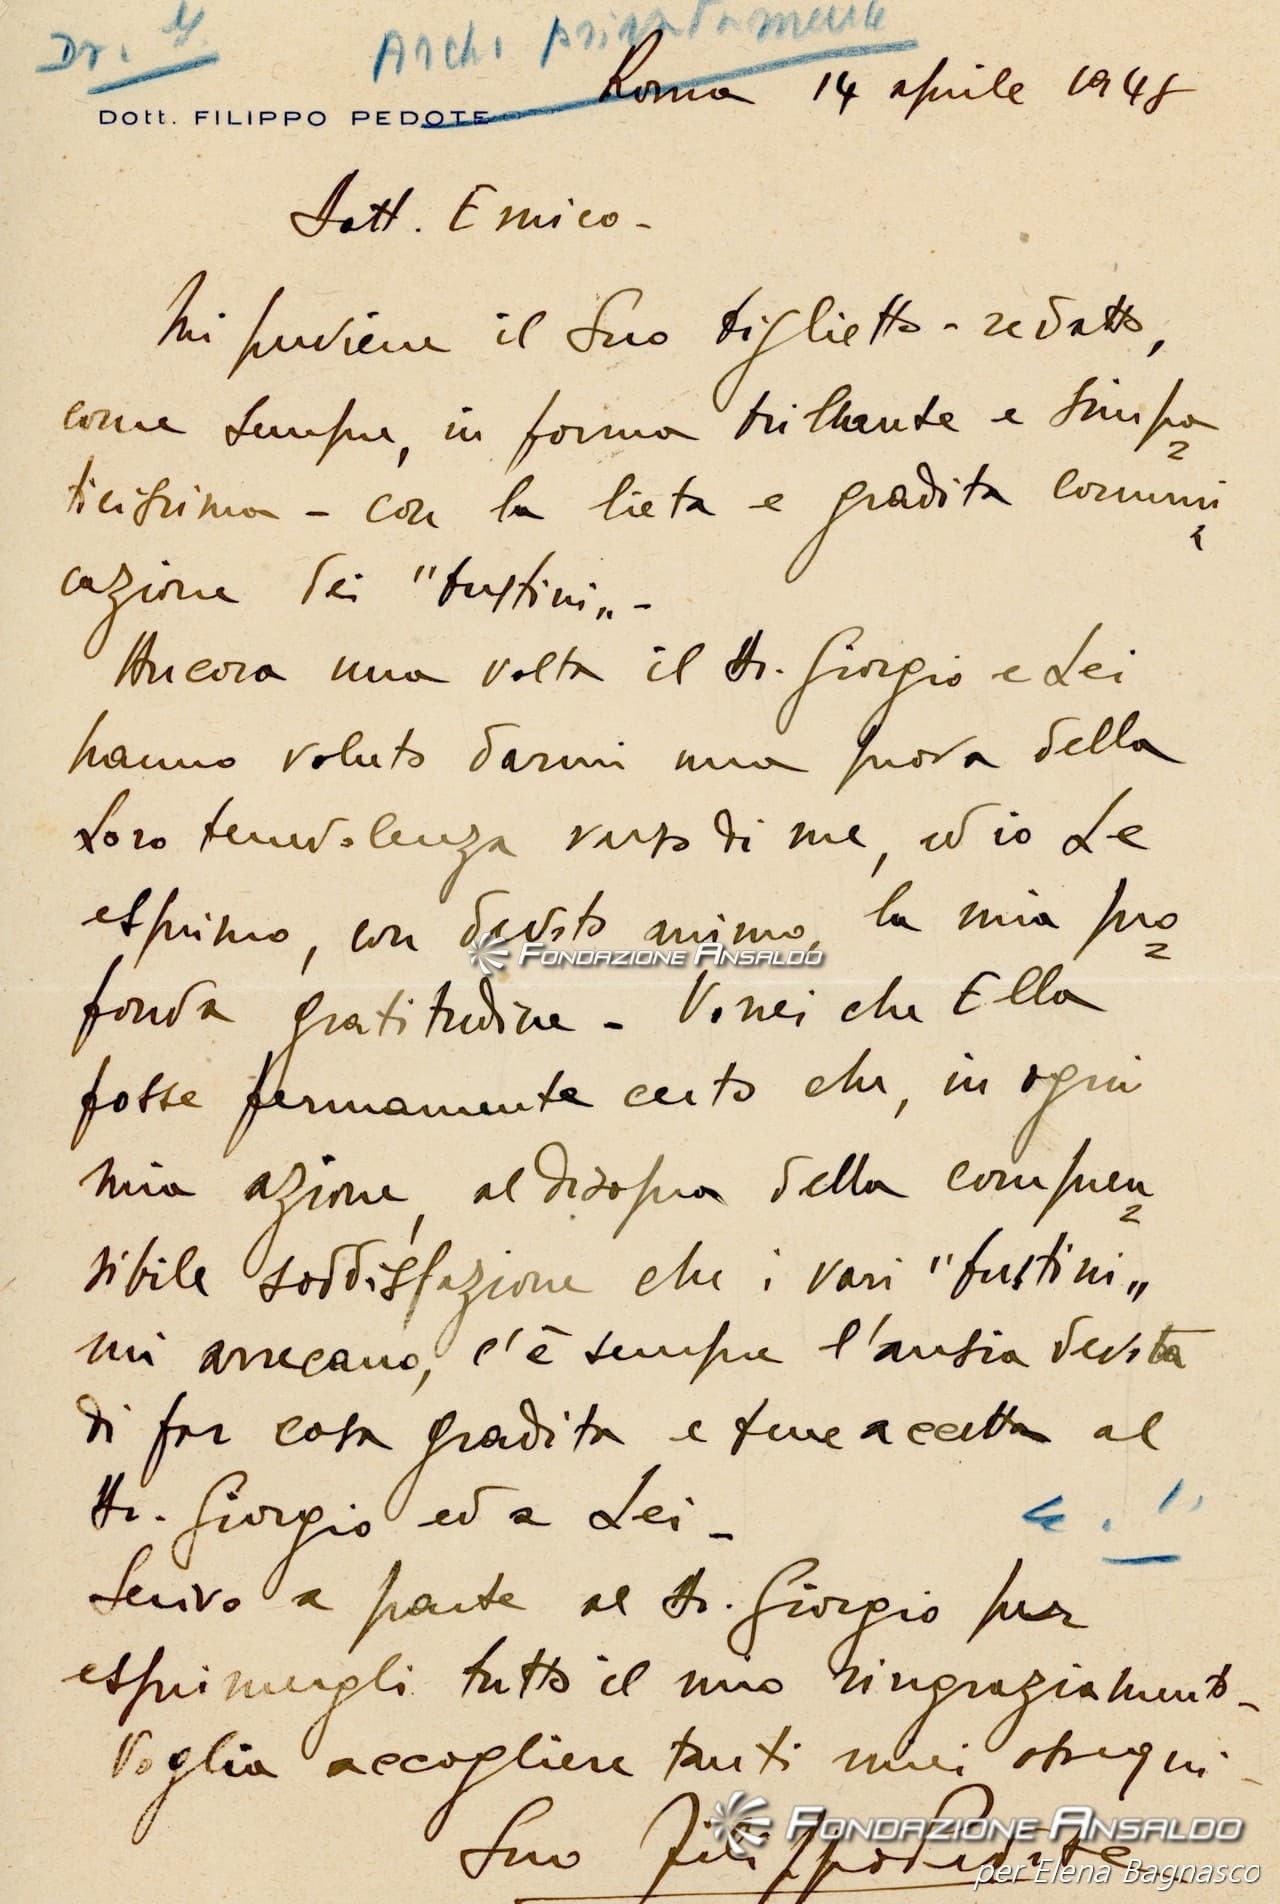 Dr. G.
Arch. privatamente
Dott. FILIPPO PEDOTE
Roma 14 aprile 1948
Dott. Emico -
Mi perviene il Suo biglietto - redatto,
come sempre, in forma brillante e simpa=
ticissima - con la lieta e gradita comuni=
cazione dei "fustini" -
Ancora una volta il Dr. Giorgio e Lei
hanno voluto darmi una prova della
Loro benevolenza verso di me, ed io Le
esprimo, con devoto animo, la mia pro=
fonda gratitudine - Vorrei che Ella
fosse fermamente certo che, in ogni
mia azione, al disopra della compren=
sibile soddisfazione che i vari "fustini"
mi arrecano, c'è sempre l'ansia devota
di far cosa gradita e bene accetta al
Dr. Giorgio ed a Lei -
Scrivo a parte al Dr. Giorgio per
esprimergli tutto il mio ringraziamento -
Voglia accogliere tanti miei ossequi -
Suo Filippo Pedote
FONDAZIONE ANSALDO
FONDAZIONE ANSALDO
per Elena Bagnasco